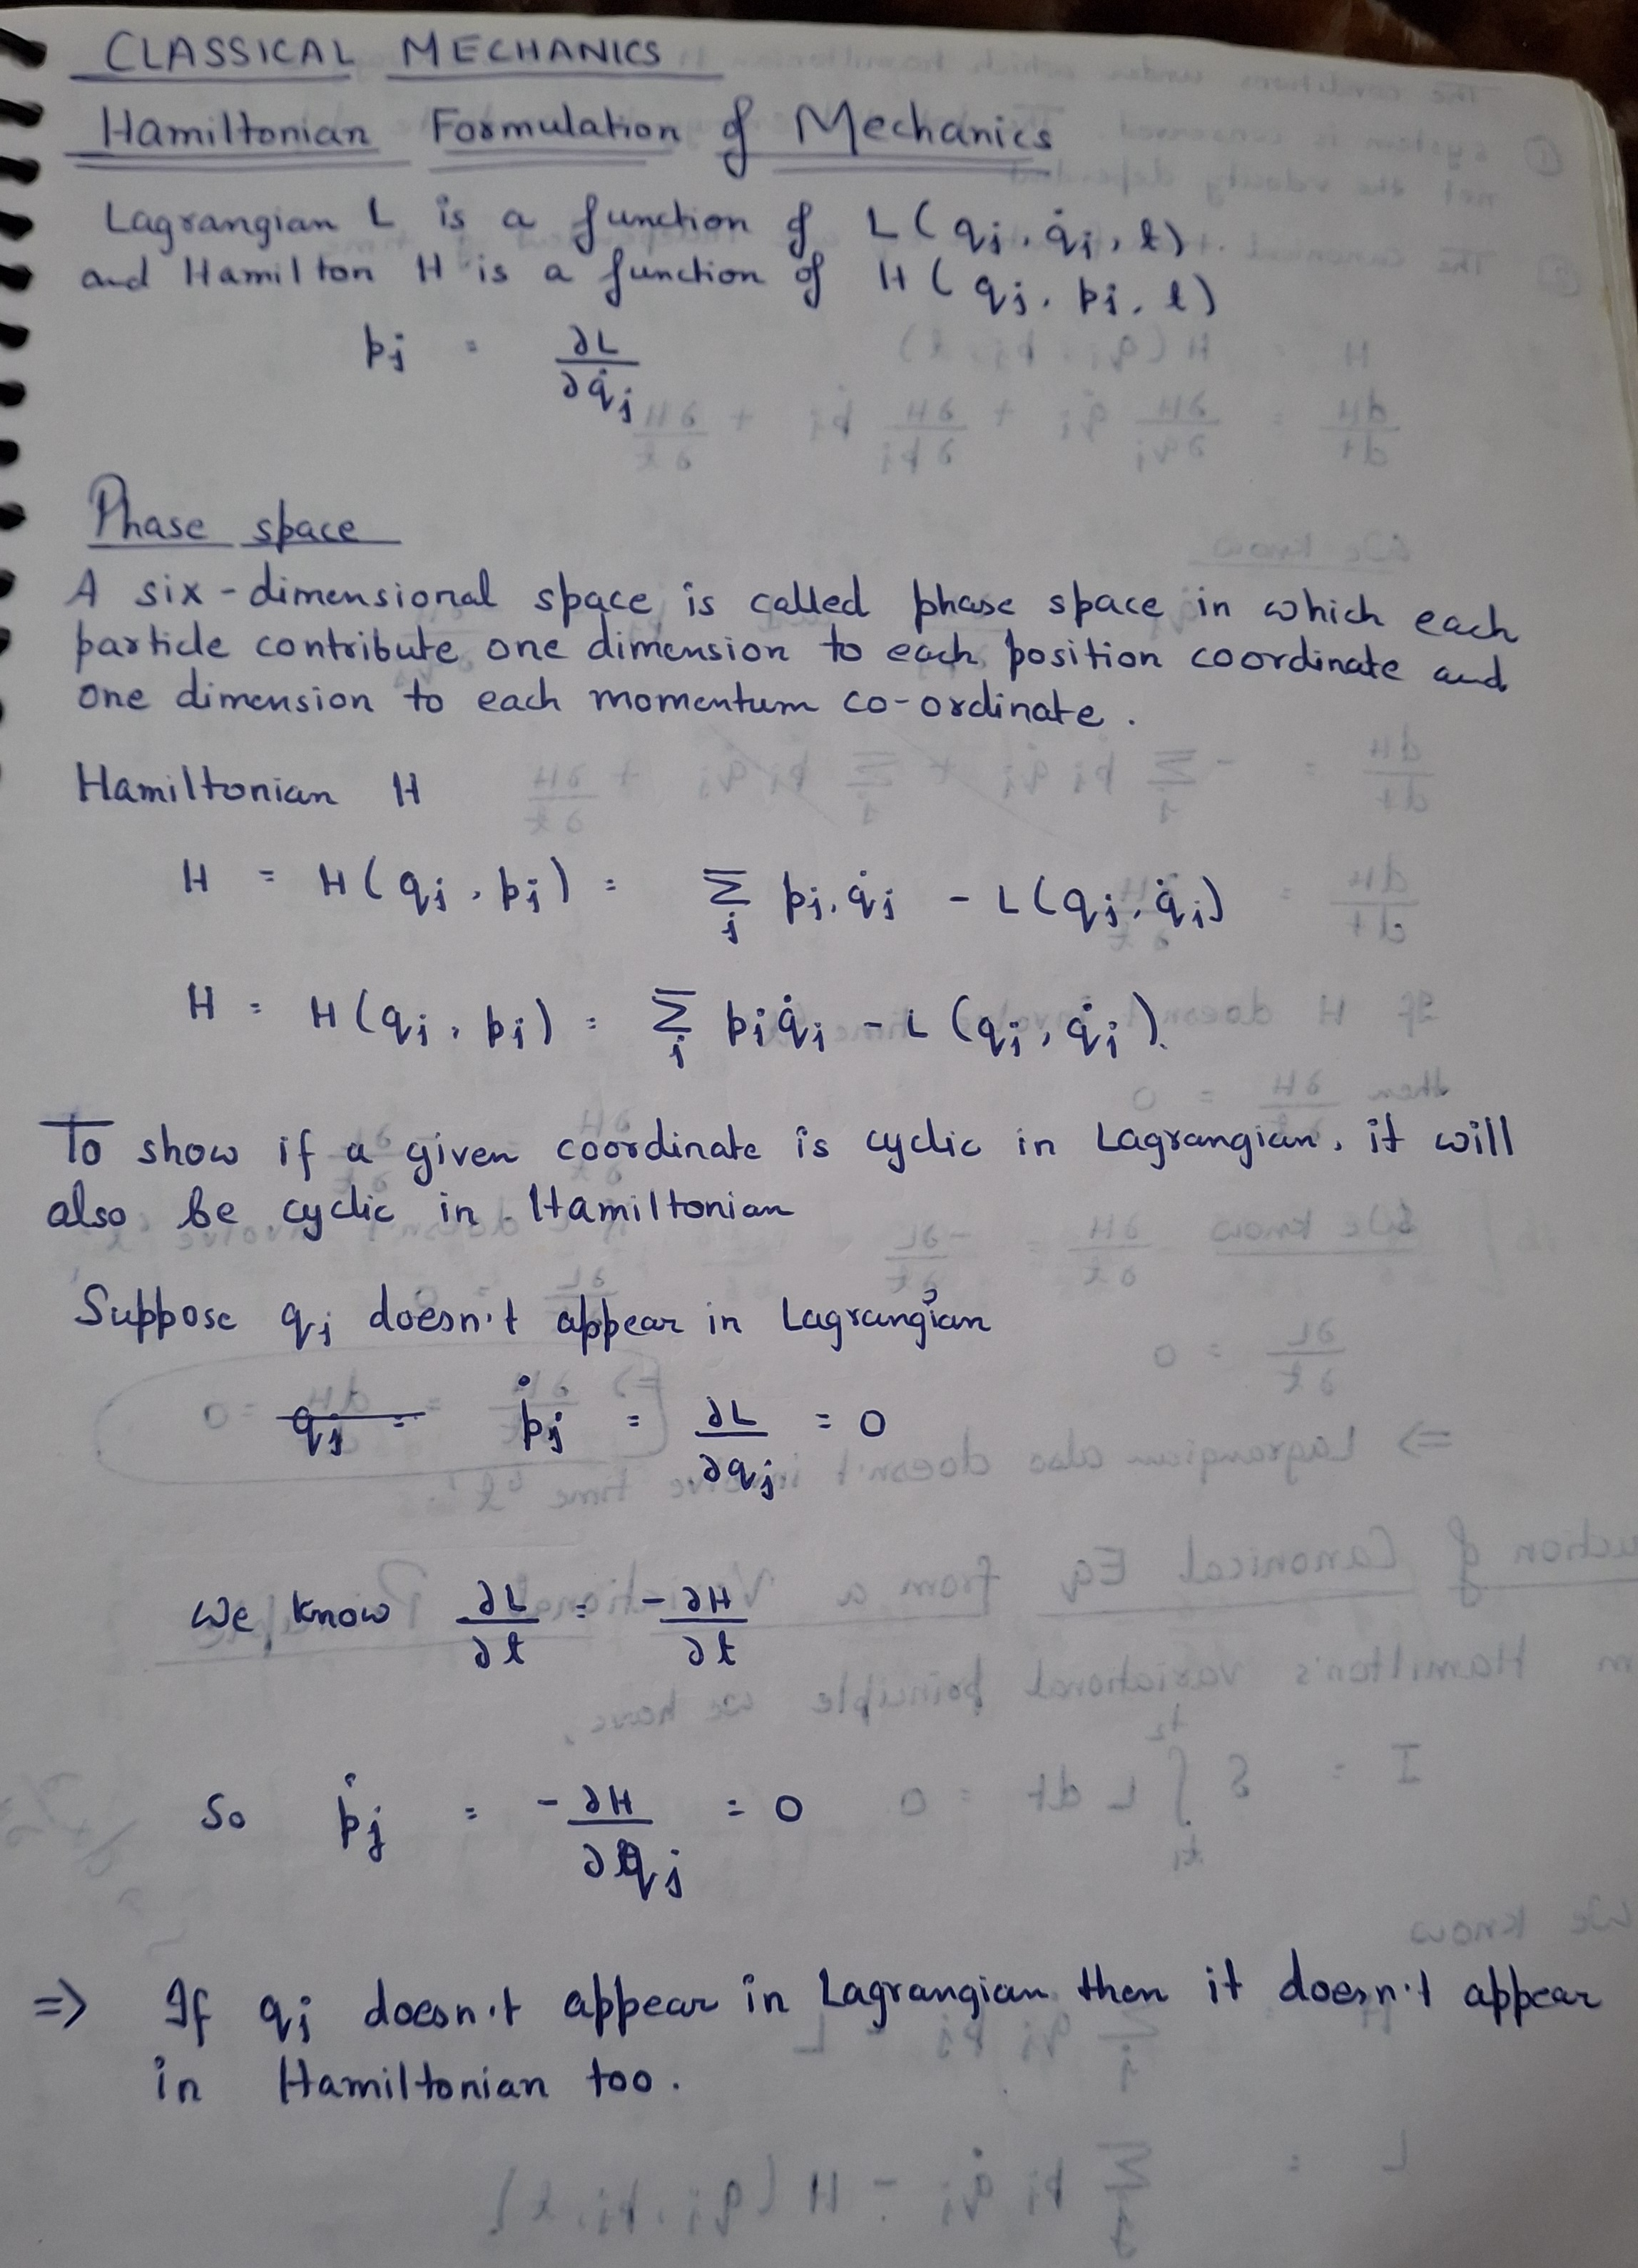 CLASSICAL MECHANICS
Hamiltonian Formulation of Mechanics
Lagrangian L is a function of L(qj, q̇j, t).
and Hamilton H is a function of H(qj, pj, t)
pj = ∂L/∂q̇j
Phase space
A six-dimensional space is called phase space in which each
particle contribute one dimension to each position coordinate and
one dimension to each momentum co-ordinate.
Hamiltonian H
H = H(qj, pj) = Σj pj.q̇j - L(qj, q̇j)
H = H(qj, pj) = Σj pj q̇j - L(qj, q̇j).
To show if a given coordinate is cyclic in Lagrangian, it will
also be cyclic in Hamiltonian
Suppose qj doesn't appear in Lagrangian
qj = ṗj = ∂L/∂qj = 0
We know ∂L/∂t = -∂H/∂t
So ṗj = -∂H/∂qj = 0
=> If qj doesn't appear in Lagrangian then it doesn't appear
in Hamiltonian too.